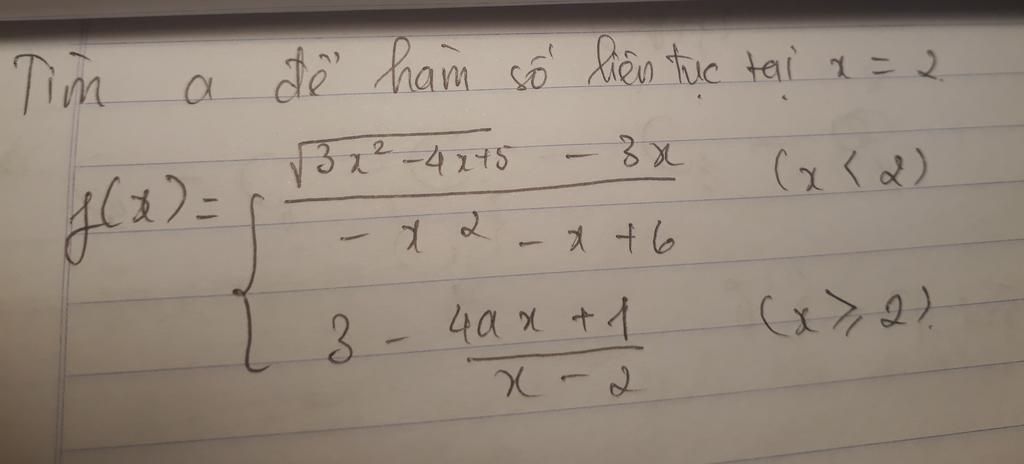 Tìm a để hàm số liên tục tại x = 2
√3x² - 4x+5 - 3x (x < 2)
f(x) =
- x² - x + 6
3 - 4ax + 1 (x ≥ 2).
x - 2